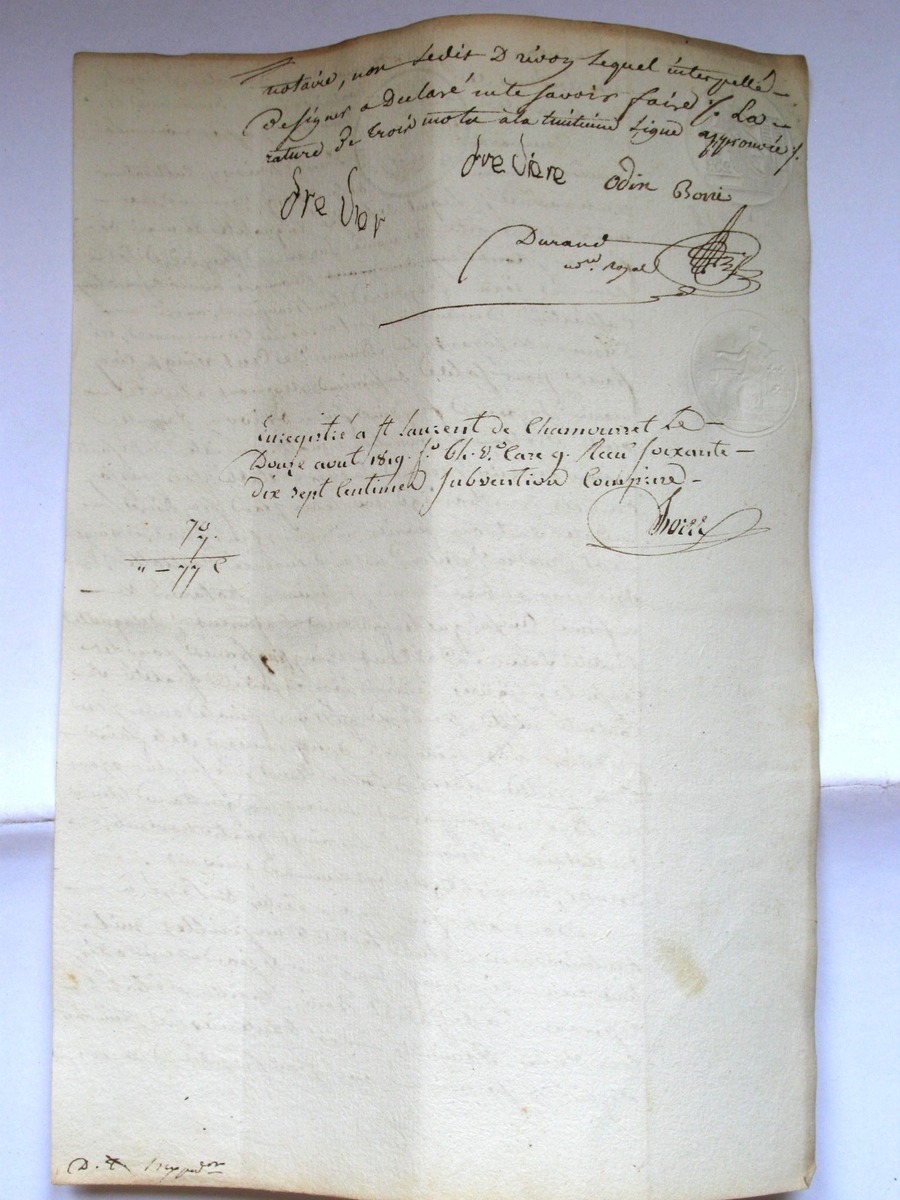 notaire, non ledit Drivon lequel interpellé
de signer a declaré ne le savoir faire /. La
rature de trois mots à la huitieme ligne approuvée /.
frevier freviere odin Borie
Durand
nore. royal
Enregistré a st Laurent de Chamousset Le
Douze aout 1819. fo. 64. vo. Case 9. Recu soixante
dix sept Centimes subvention Comprise
70.
7.
" - 77 c
D. t.